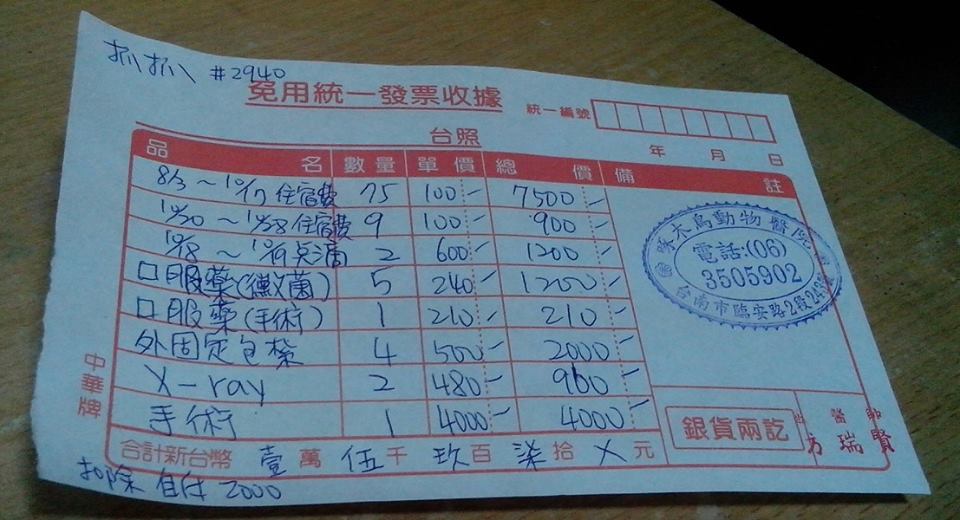 抓抓 #2940
免用統一發票收據
統一編號
台照
年 月 日
品名 數量 單價 總價 備註
8/3 ~ 10/17 住宿費 75 100 7500
10/20 ~ 10/28 住宿費 9 100 900
10/18 ~ 10/19 点滴 2 600 1200
口服藥(黴菌) 5 240 1200
口服藥(手術) 1 210 210
外固定包紮 4 500 2000
X-ray 2 480 960
手術 1 4000 4000
啄木鳥動物醫院
電話:(06)
3505902
台南市臨安路2段
銀貨兩訖
醫師
方瑞賢
合計新台幣 壹萬 伍千 玖百 柒拾 X元
中華牌
扣除 自付 2000